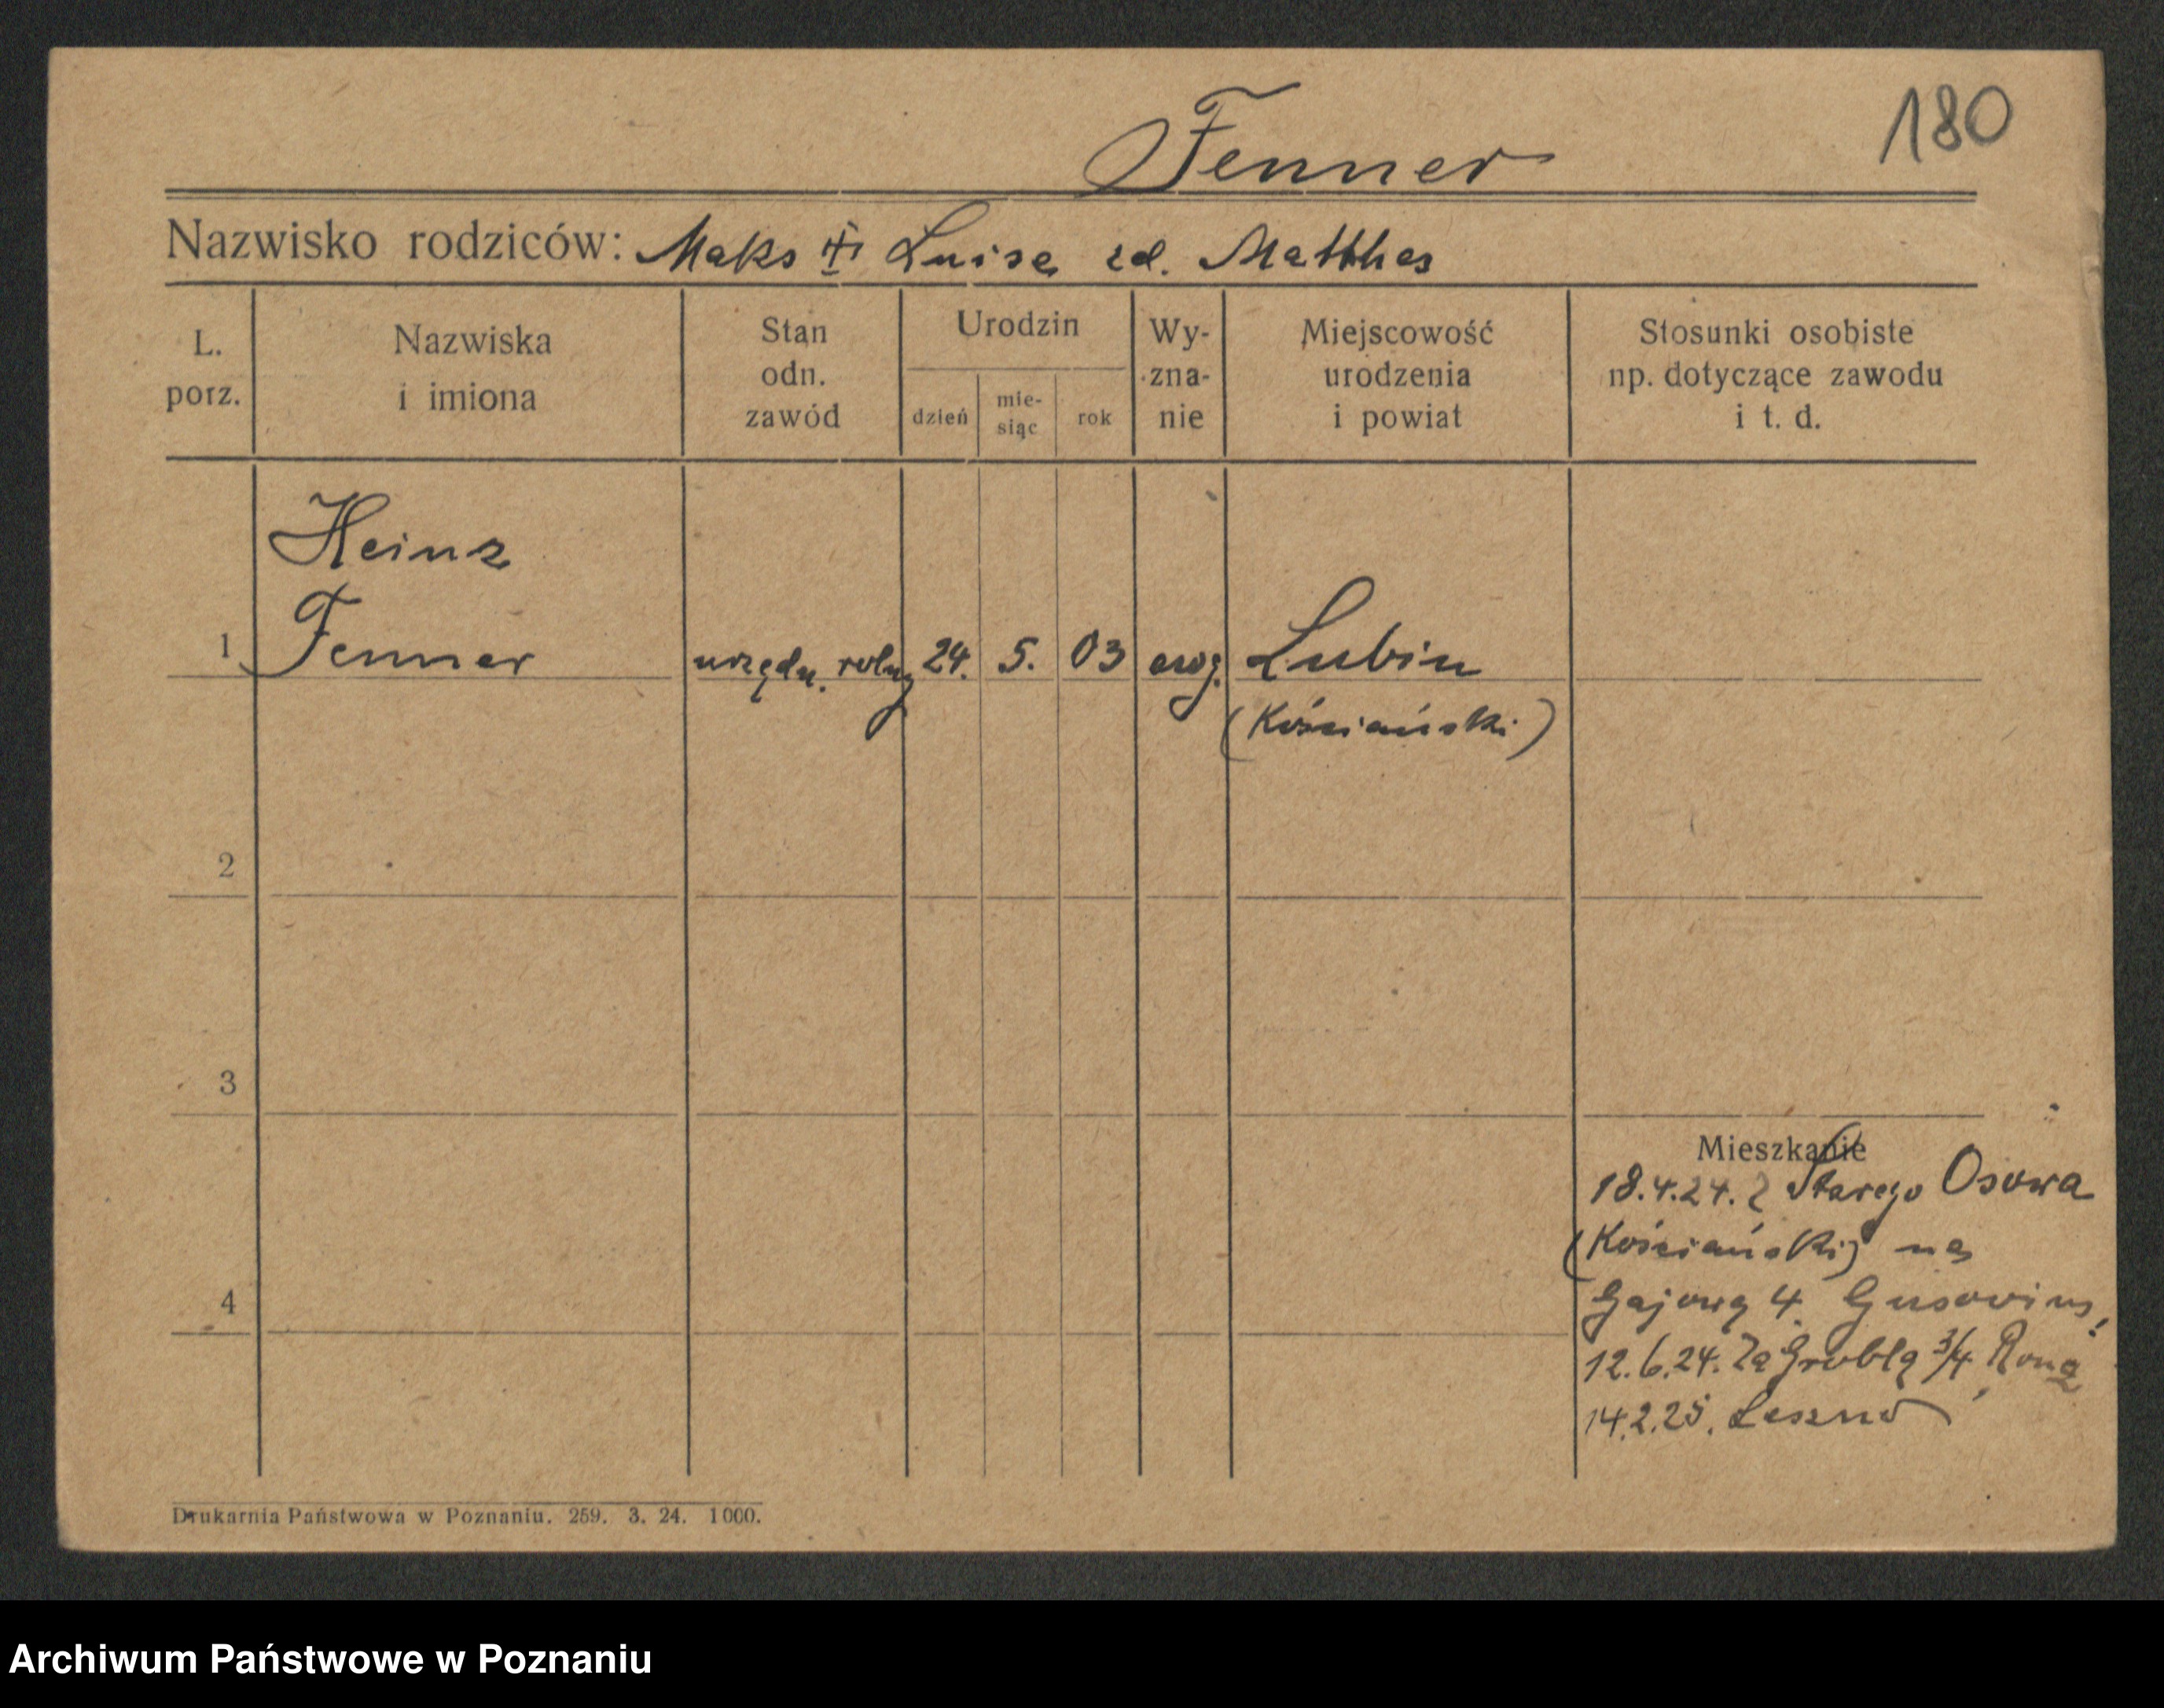 180
Fenner
Nazwisko rodziców: Maks i Luise zd. Matthes
L. porz.
Nazwiska i imiona
Stan odn. zawód
Urodzin
dzień
mie-siąc
rok
Wy-zna-nie
Miejscowość urodzenia i powiat
Stosunki osobiste np. dotyczące zawodu i t. d.
Heinz
1 Fenner urzędn. rolny 24. 5. 03 ewg. Lubin
(Kościański)
2
3
Mieszkanie
18.4.24. z Starego Osowa
(Kościański) na
4
Gajową 4. Gusovius,
12.6.24. Za Groblą 3/4,
14.2.25. Leszno
Drukarnia Państwowa w Poznaniu. 259. 3. 24. 1000.
Archiwum Państwowe w Poznaniu